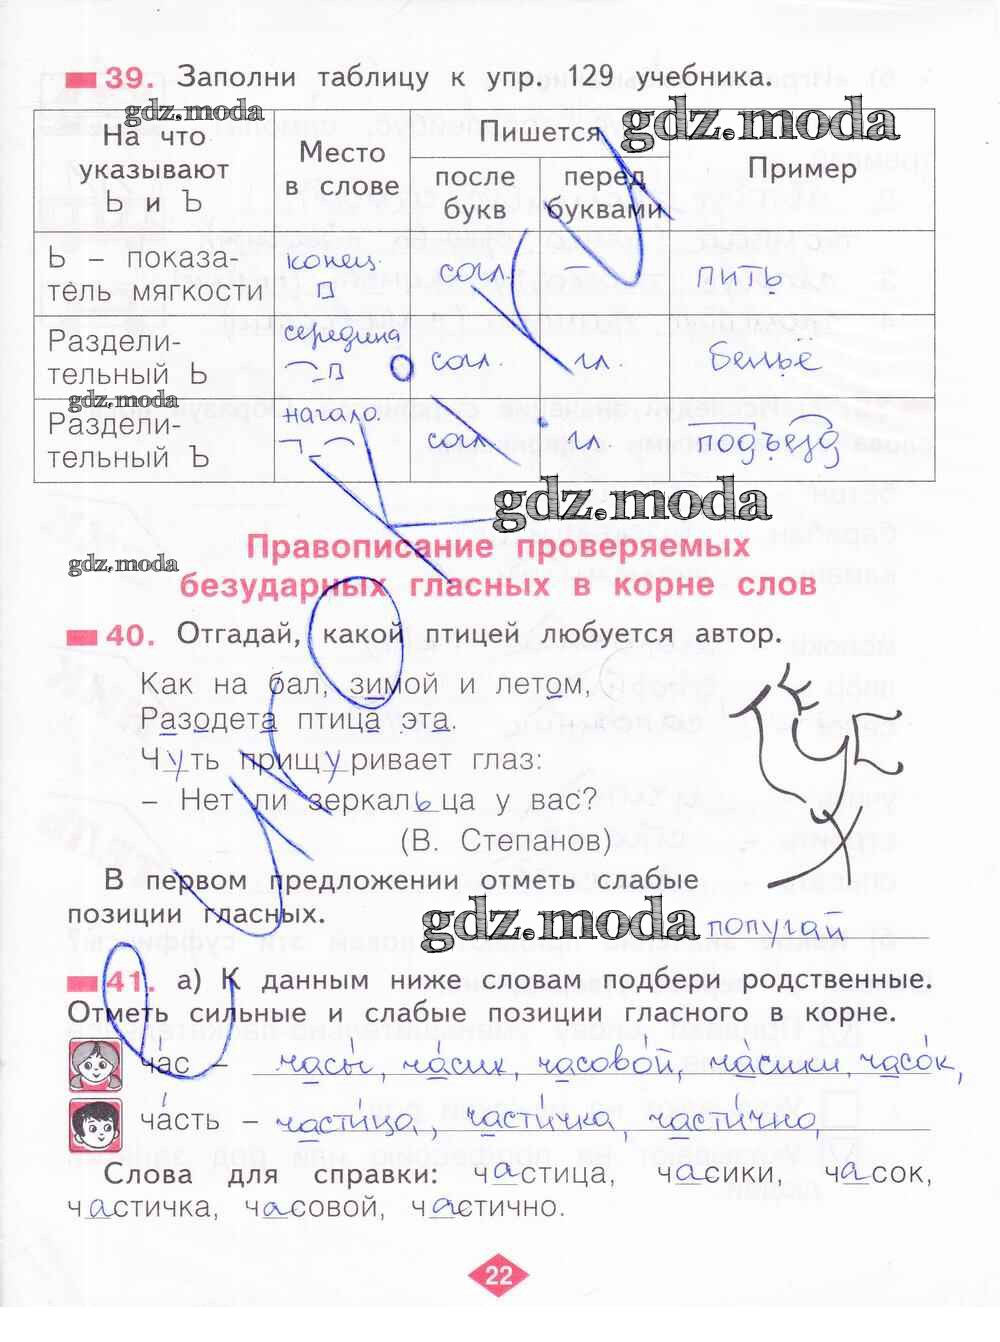 39. Заполни таблицу к упр. 129 учебника.
gdz.moda
gdz.moda
На что указывают Ь и Ъ
Место в слове
Пишется
после букв
перед буквами
Пример
Ь – показа-
тель мягкости
конец
согл.
–
пить
Раздели-
тельный Ь
середина
согл.
гл.
бельё
gdz.moda
Раздели-
тельный Ъ
начало
согл.
гл.
подъезд
gdz.moda
Правописание проверяемых
gdz.moda
безударных гласных в корне слов
40. Отгадай, какой птицей любуется автор.
Как на бал, зимой и летом,
Разодета птица эта.
Чуть прищуривает глаз:
– Нет ли зеркальца у вас?
(В. Степанов)
В первом предложении отметь слабые
позиции гласных.
gdz.moda
попугай
41. а) К данным ниже словам подбери родственные.
Отметь сильные и слабые позиции гласного в корне.
ча́с – часы́, ча́сик, часово́й, ча́сики, часо́к,
ча́сть – части́ца, части́чка, части́чно
Слова для справки: частица, часики, часок,
частичка, часовой, частично.
22